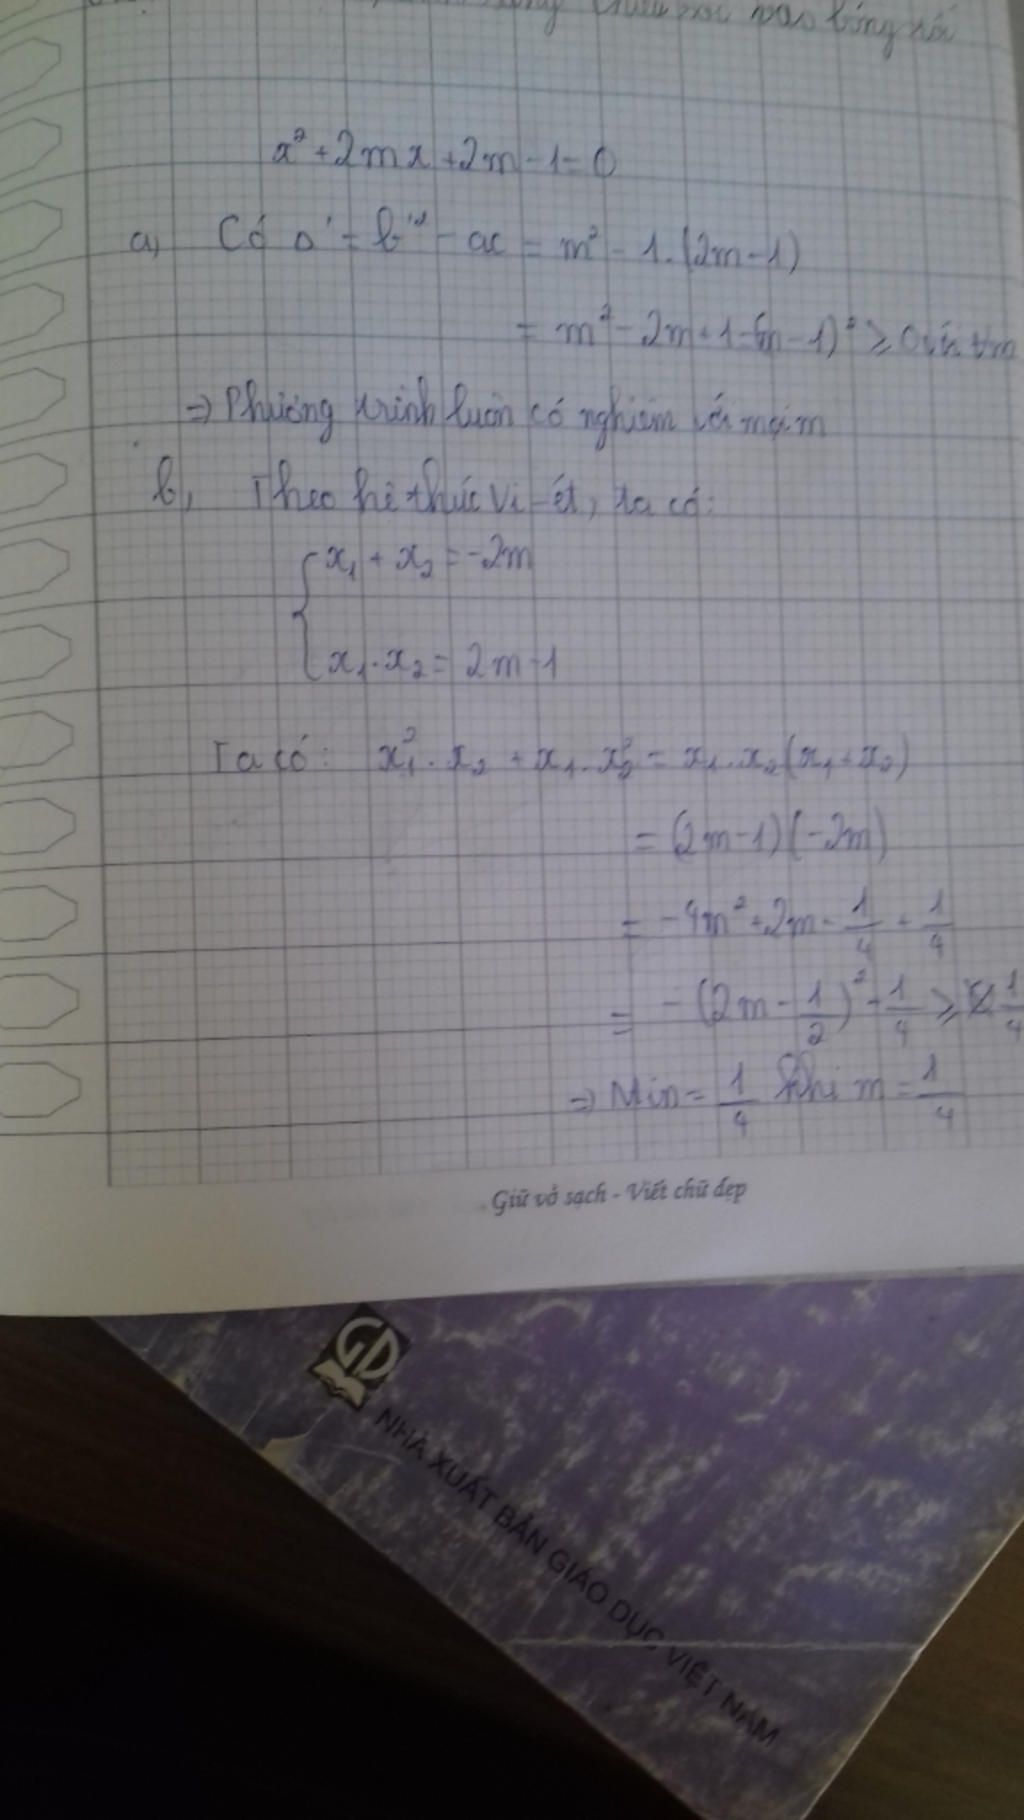 vào bóng nói
x² + 2mx + 2m - 1 = 0
a, Có Δ' = b'² - ac = m² - 1.(2m - 1)
= m² - 2m + 1 = (m - 1)² ≥ 0 với ∀m
=> Phương trình luôn có nghiệm với mọi m
b, Theo hệ thức Vi-ét, ta có:
x₁ + x₂ = -2m
x₁.x₂ = 2m - 1
Ta có: x₁².x₂ + x₁.x₂² = x₁.x₂(x₁ + x₂)
= (2m - 1)(-2m)
= -4m² + 2m - 1/4 + 1/4
= -(2m - 1/2)² + 1/4 ≥ 1/4
=> Min = 1/4 khi m = 1/4
Giữ vở sạch - Viết chữ đẹp
GD
NHÀ XUẤT BẢN GIÁO DỤC VIỆT NAM